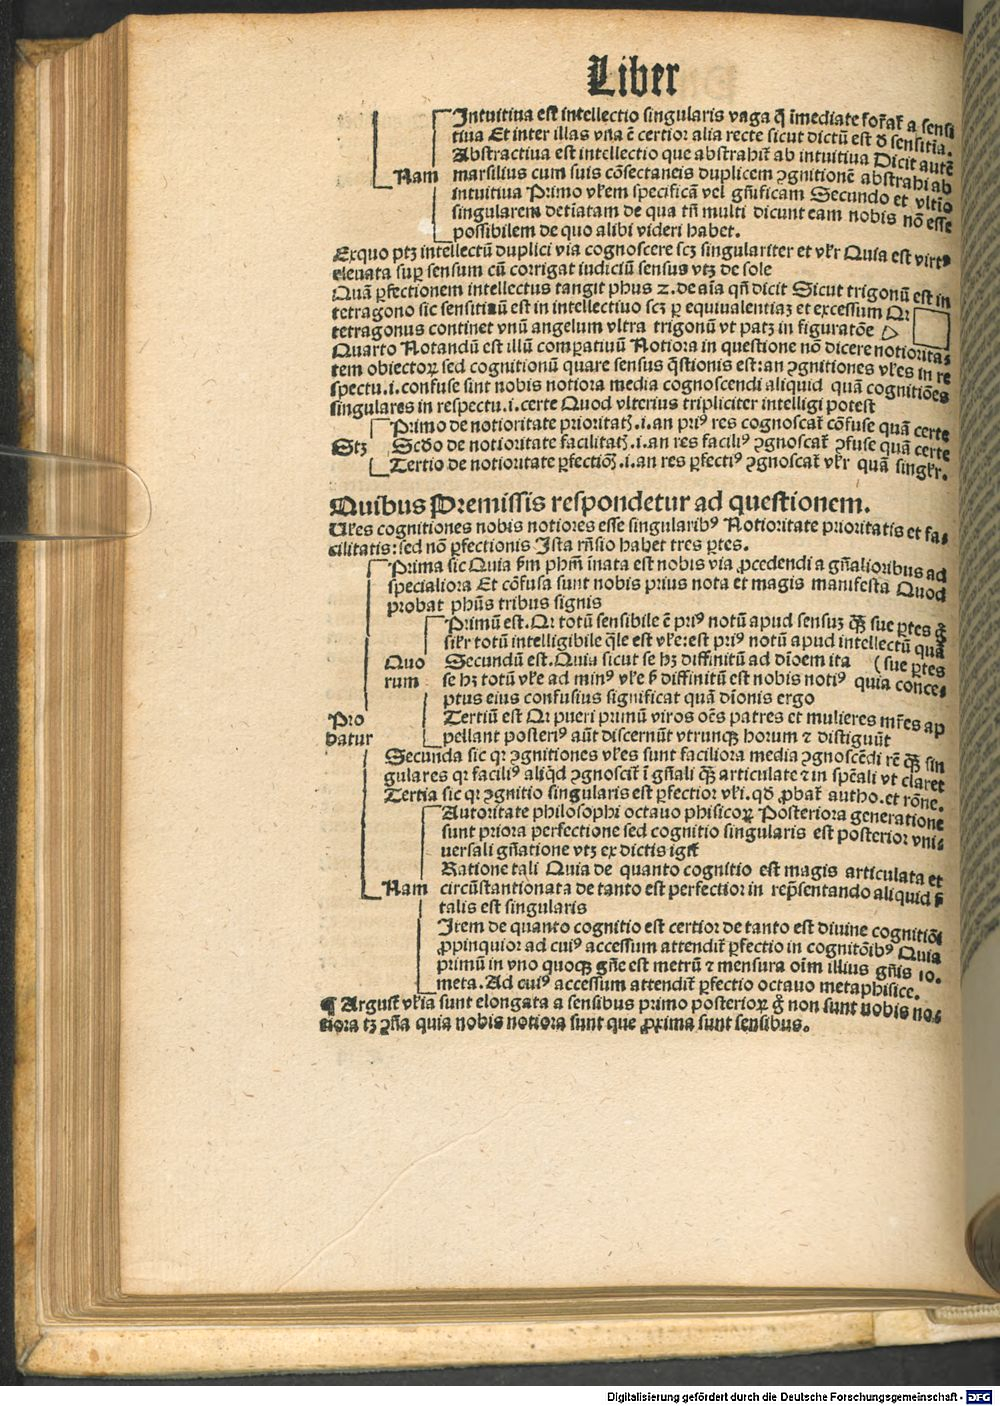 Liber
Intuitiua est intellectio singularis vaga q̄ īmediate for̄at̄ a sensi
tiua Et inter illas vna ē certior alia recte sicut dictū est d̄ sensitīa.
Abstractiua est intellectio que abstrahit̄ ab intuitiua Dicit autē
Nam marsilius cum suis cōsectaneis duplicem ꝯgnitionē abstrahi ab
intuitiua Primo vl̄em specificā vel gn̄ificam Secundo et vltīo
singularem detiatam de qua tn̄ multi dicunt eam nobis nō esse
possibilem de quo alibi videri habet.
Exquo ptꝫ intellectū duplici via cognoscere scꝫ singulariter et vl̄r Quia est virtꝰ
eleuata suꝑ sensum cū corrigat iudiciū sensus vtꝫ de sole
Quā ꝑfectionem intellectus tangit phus 2. de aīa qn̄ dicit Sicut trigonū est in
tetragono sic sensitiuū est in intellectiuo scꝫ ꝑ equiualentiaꝫ et excessum Qr
tetragonus continet vnū angelum vltra trigonū vt patꝫ in figuratōe
Quarto Notandū est illū comꝑatiuū Notiora in questione nō dicere notiorita-
tem obiectoꝝ sed cognitionū quare sensus q̄stionis est: an ꝯgnitiones vl̄es in re
spectu .i. confuse sint nobis notiora media cognoscendi aliquid quā cognitiōes
singulares in respectu .i. certe Quod vlterius tripliciter intelligi potest
Primo de notioritate prioritatꝭ .i. an priꝰ res cognoscat̄ cōfuse quā certe
Stꝫ Scd̄o de notioritate facilitatꝭ .i. an res faciliꝰ ꝯgnoscat̄ ꝯfuse quā certe
Tertio de notioritate ꝑfectiōꝭ .i. an res ꝑfectiꝰ ꝯgnoscat̄ vl̄r quā singl̄r.
Quibus Premissis respondetur ad questionem.
Vl̄es cognitiones nobis notiores esse singularibꝰ Notioritate prioritatis et fa-
cilitatis: sed nō ꝑfectionis Ista rn̄sio habet tres ꝑtes.
Prima sic Quia ẜm phm̄ īnata est nobis via ꝓcedendi a gn̄alioribus ad
specialiora Et cōfusa sunt nobis prius nota et magis manifesta Quod
probat phūs tribus signis
Primū est. Qr totū sensibile ē priꝰ notū apud sensuꝫ q̄ꝫ sue ꝑtes g̊
sil̄r totū intelligibile q̄le est vl̄e: est priꝰ notū apud intellectū quā
Quo Secundū est. Quia sicut se hꝫ diffinitū ad dīoem ita (sue ꝑtes
rum se hꝫ totū vl̄e ad minꝰ vl̄e ẜ diffinitū est nobis notiꝰ quia conce-
ptus eius confusius significat quā dīonis ergo
Pro Tertiū est Qr pueri primū viros oēs patres et mulieres mr̄es ap
batur pellant posteriꝰ aūt discernūt vtrunqꝫ horum ⁊ distiguūt
Secunda sic qr ꝯgnitiones vl̄es sunt faciliora media ꝯgnoscēdi rē q̄ꝫ sin
gulares qr faciliꝰ aliqd̄ ꝯgnoscit̄ ī gn̄ali q̄ꝫ articulate ⁊ in spēali vt claret
Tertia sic qr ꝯgnitio singularis est ꝑfectior vl̄i. qd̄ ꝓbat̄ autho. et rōne.
Autoritate philosophi octauo phisicoꝝ Posteriora generatione
sunt priora perfectione sed cognitio singularis est posterior vni-
uersali gn̄atione vtꝫ ex dictis igit̄
Ratione tali Quia de quanto cognitio est magis articulata et
Nam circūstantionata de tanto est perfectior in rep̄sentando aliquid ẜ
talis est singularis
Item de quanto cognitio est certior de tanto est diuine cognitiōi
ꝓpinquior ad cuiꝰ accessum attendit̄ ꝑfectio in cognitōibꝰ Quia
primū in vno quoqꝫ gn̄e est metrū ⁊ mensura oīm illius gn̄is 10.
meta. Ad cuiꝰ accessum attendit̄ ꝑfectio octauo metaphisice.
¶ Arguit̄ vl̄ia sunt elongata a sensibus primo posterioꝝ g̊ non sunt nobis no-
tiora tꝫ ꝯn̄a quia nobis notiora sunt que ꝓxima sunt sensibus.
Digitalisierung gefördert durch die Deutsche Forschungsgemeinschaft - DFG